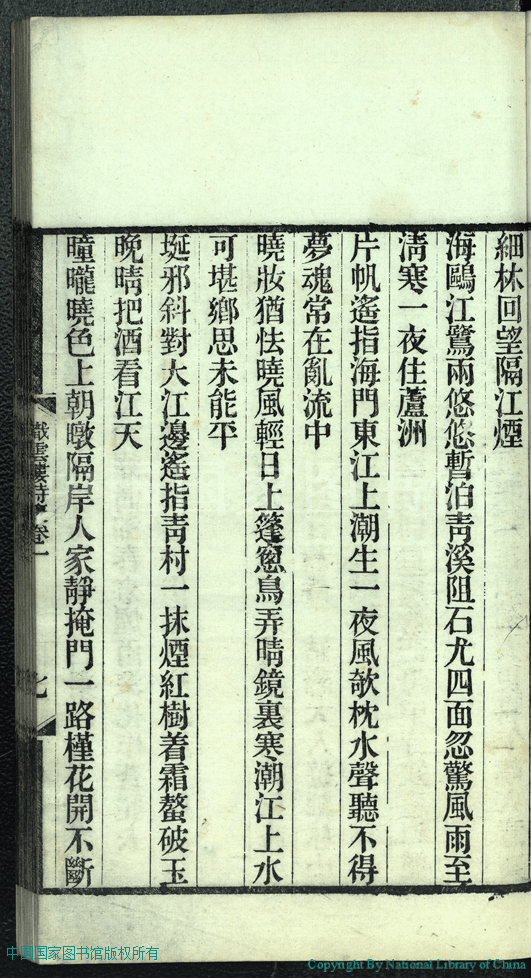 細林回望隔江煙
海鷗江鷺兩悠悠暫泊靑溪阻石尤四面忽驚風雨至
淸寒一夜住蘆洲
片帆遙指海門東江上潮生一夜風欹枕水聲聽不得
夢魂常在亂流中
曉妝猶怯曉風輕日上篷窻鳥弄晴鏡裏寒潮江上水
可堪鄉思未能平
埏邪斜對大江邊遙指靑村一抹煙紅樹着霜螯破玉
晚晴把酒看江天
曈曨曉色上朝暾隔岸人家靜掩門一路槿花開不斷
雲樓詩
卷一
中国国家图书馆版权所有
Copyright By National Library of China